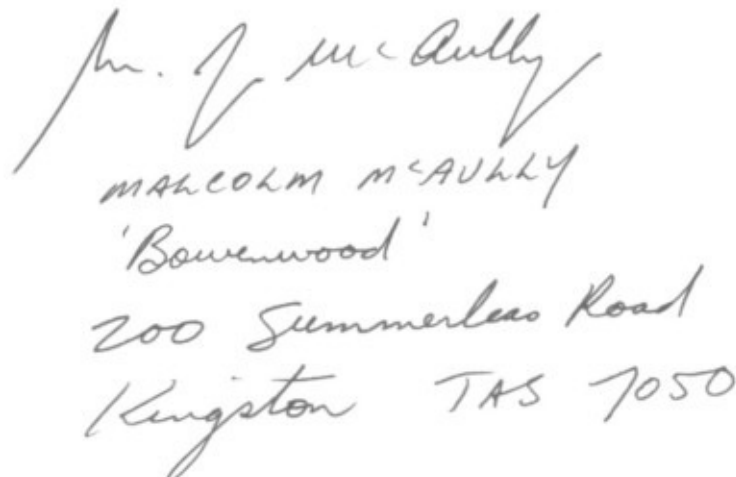 M. J. McAully
MALCOLM McAULLY
'Bowenwood'
200 Summerleas Road
Kingston TAS 7050